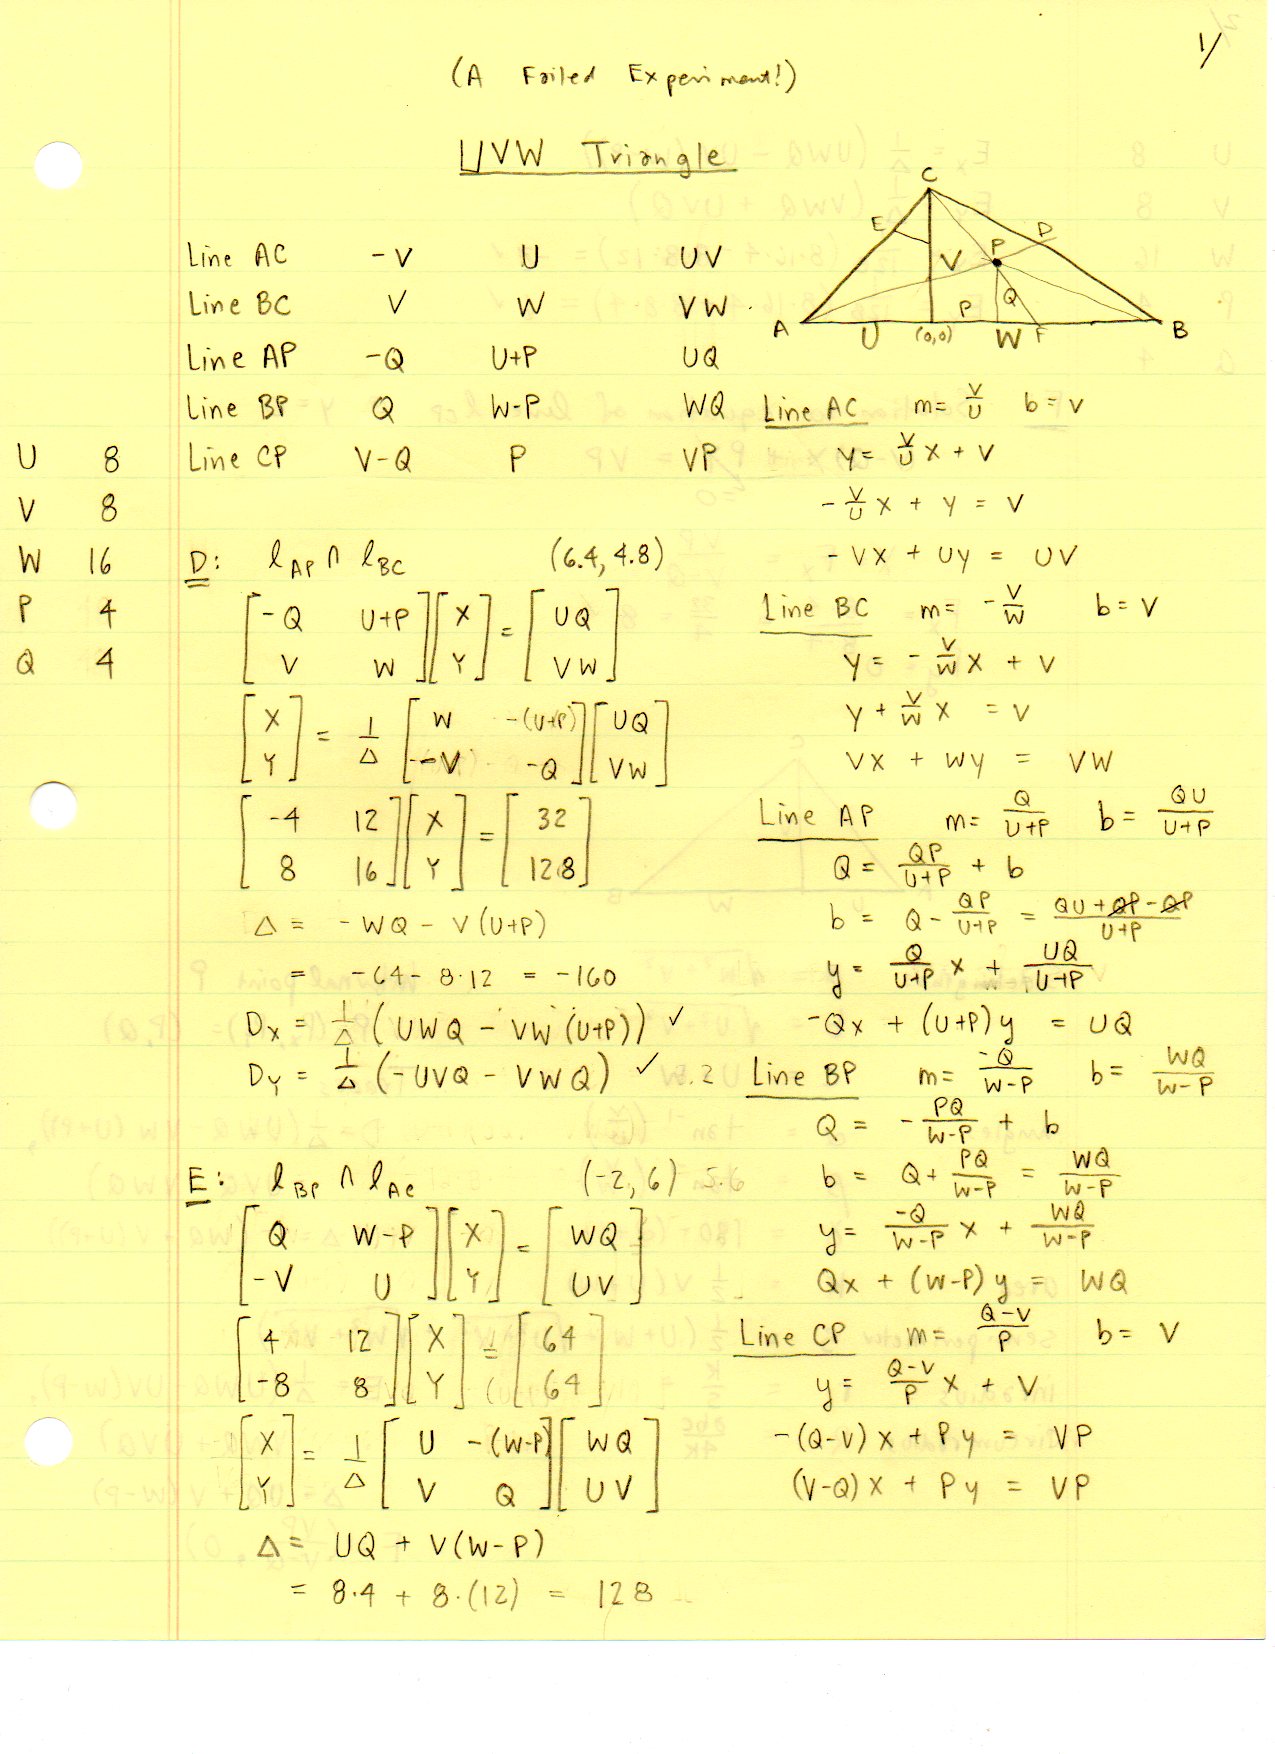 1/
(A Failed Experiment!)
UVW Triangle
C
E
D
P
V
Q
P
A
U
(0,0)
W
F
B
Line AC -V U UV
Line BC V W VW
Line AP -Q U+P UQ
Line BP Q W-P WQ
Line CP V-Q P VP
U 8
V 8
W 16
P 4
Q 4
D: l_AP ∩ l_BC (6.4, 4.8)
[-Q U+P; V W] [X; Y] = [UQ; VW]
[X; Y] = 1/Δ [W -(U+P); -V -Q] [UQ; VW]
[-4 12; 8 16] [X; Y] = [32; 128]
Δ = -WQ - V(U+P)
= -64 - 8·12 = -160
Dx = 1/Δ (UWQ - VW(U+P)) ✓
Dy = 1/Δ (-UVQ - VWQ) ✓ 3.2
E: l_BP ∩ l_AC (-2, 6) 5.6
[Q W-P; -V U] [X; Y] = [WQ; UV]
[4 12; -8 8] [X; Y] = [64; 64]
[X; Y] = 1/Δ [U -(W-P); V Q] [WQ; UV]
Δ = UQ + V(W-P)
= 8·4 + 8·(12) = 128
Line AC m= V/U b=V
y= V/U x + V
-V/U x + y = V
-Vx + Uy = UV
Line BC m= -V/W b=V
y= -V/W x + V
y + V/W x = V
Vx + Wy = VW
Line AP m= Q/U+P b= QU/U+P
Q= QP/U+P + b
b= Q- QP/U+P = QU+QP-QP/U+P
y= Q/U+P x + UQ/U+P
-Qx + (U+P)y = UQ
Line BP m= -Q/W-P b= WQ/W-P
Q= -PQ/W-P + b
b= Q+ PQ/W-P = WQ/W-P
y= -Q/W-P x + WQ/W-P
Qx + (W-P)y = WQ
Line CP m= Q-V/P b= V
y= Q-V/P x + V
-(Q-V)x + Py = VP
(V-Q)x + Py = VP